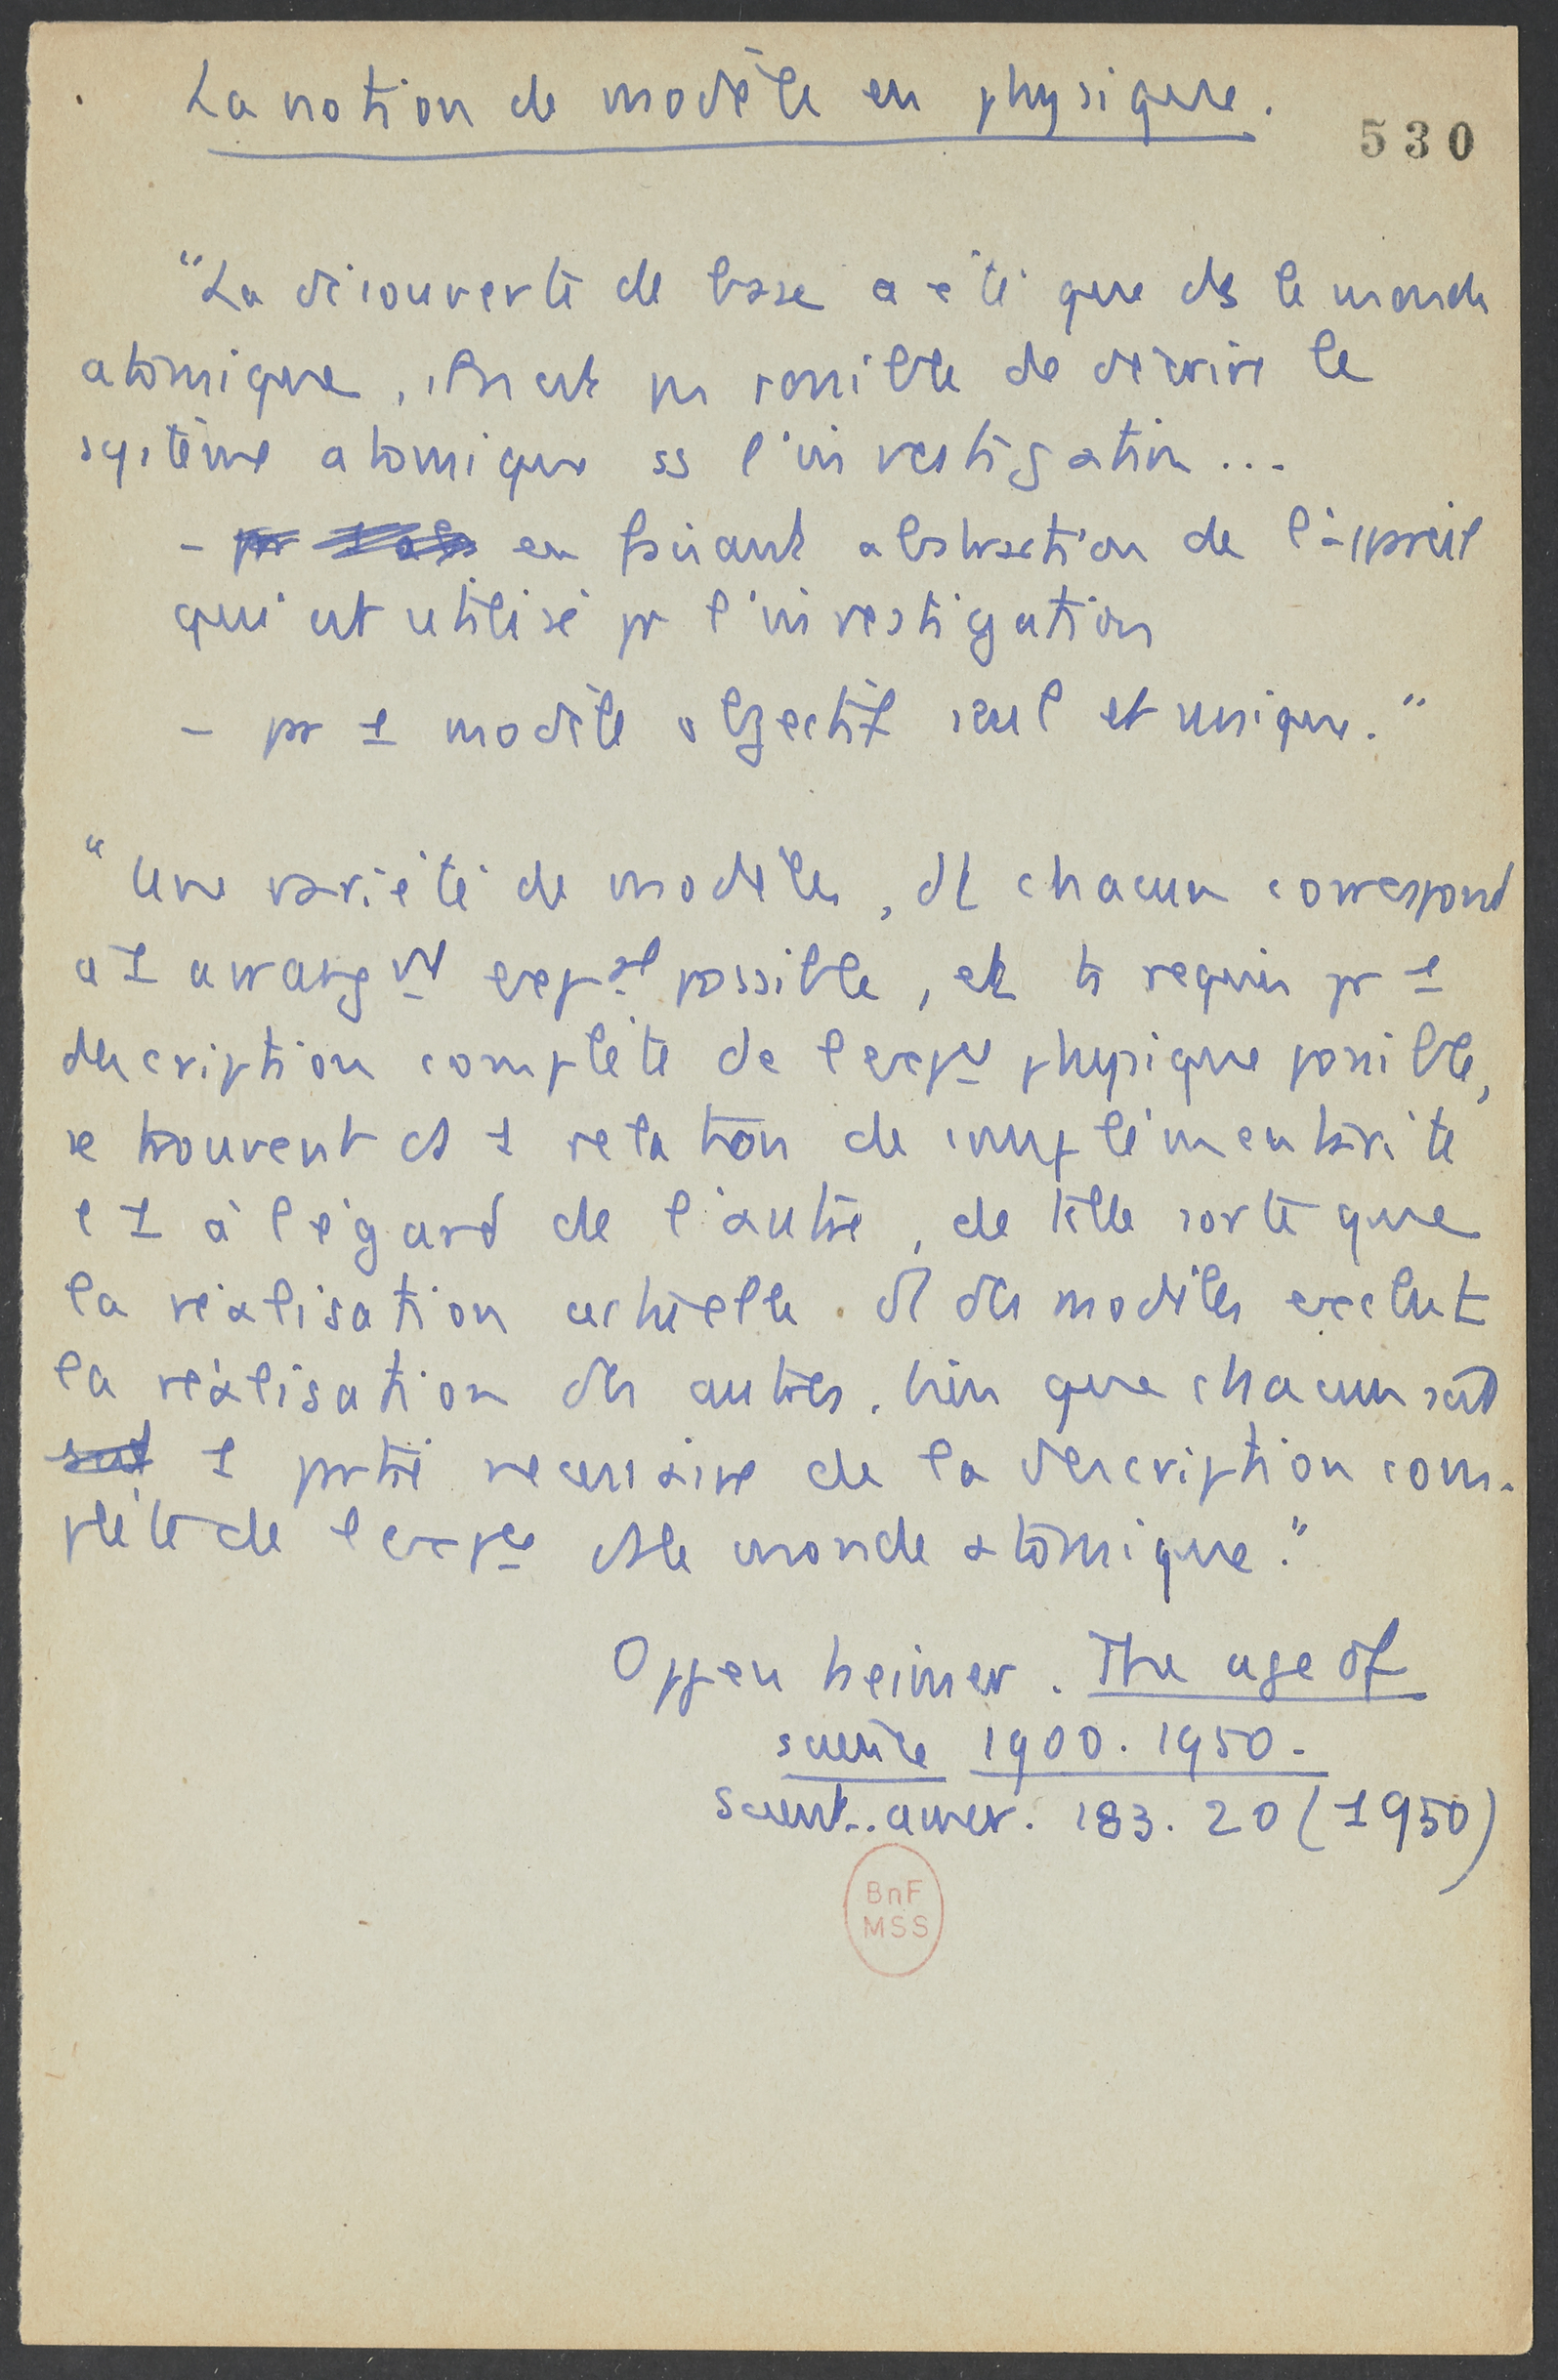 La notion de modèle en physique.
530
"La découverte de base a été que ds le monde
atomique, il n'est pas possible de décrire le
système atomique ss l'investigation...
- en faisant abstraction de l'appareil
qui est utilisé pr l'investigation
- par 1 modèle objectif seul et unique."
"Une variété de modèles, dt chacun correspond
à 1 arrangt expal possible, et ts requis pr 1
description complète de l'expce physique possible,
se trouvent ds 1 relation de complémentarité
l'1 à l'égard de l'autre, de telle sorte que
la réalisation actuelle d'1 des modèles exclut
la réalisation des autres, bien que chacun soit
1 partie nécessaire de la description com-
plète de l'expce ds le monde atomique."
Oppenheimer. The age of
science 1900. 1950.
Scient. amer. 183. 20 (1950)
BnF
MSS